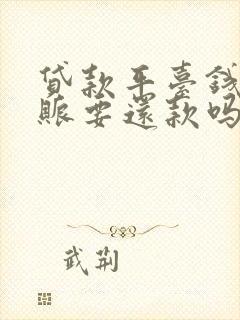 贷款平臺錢
賬要還款吗
武荆